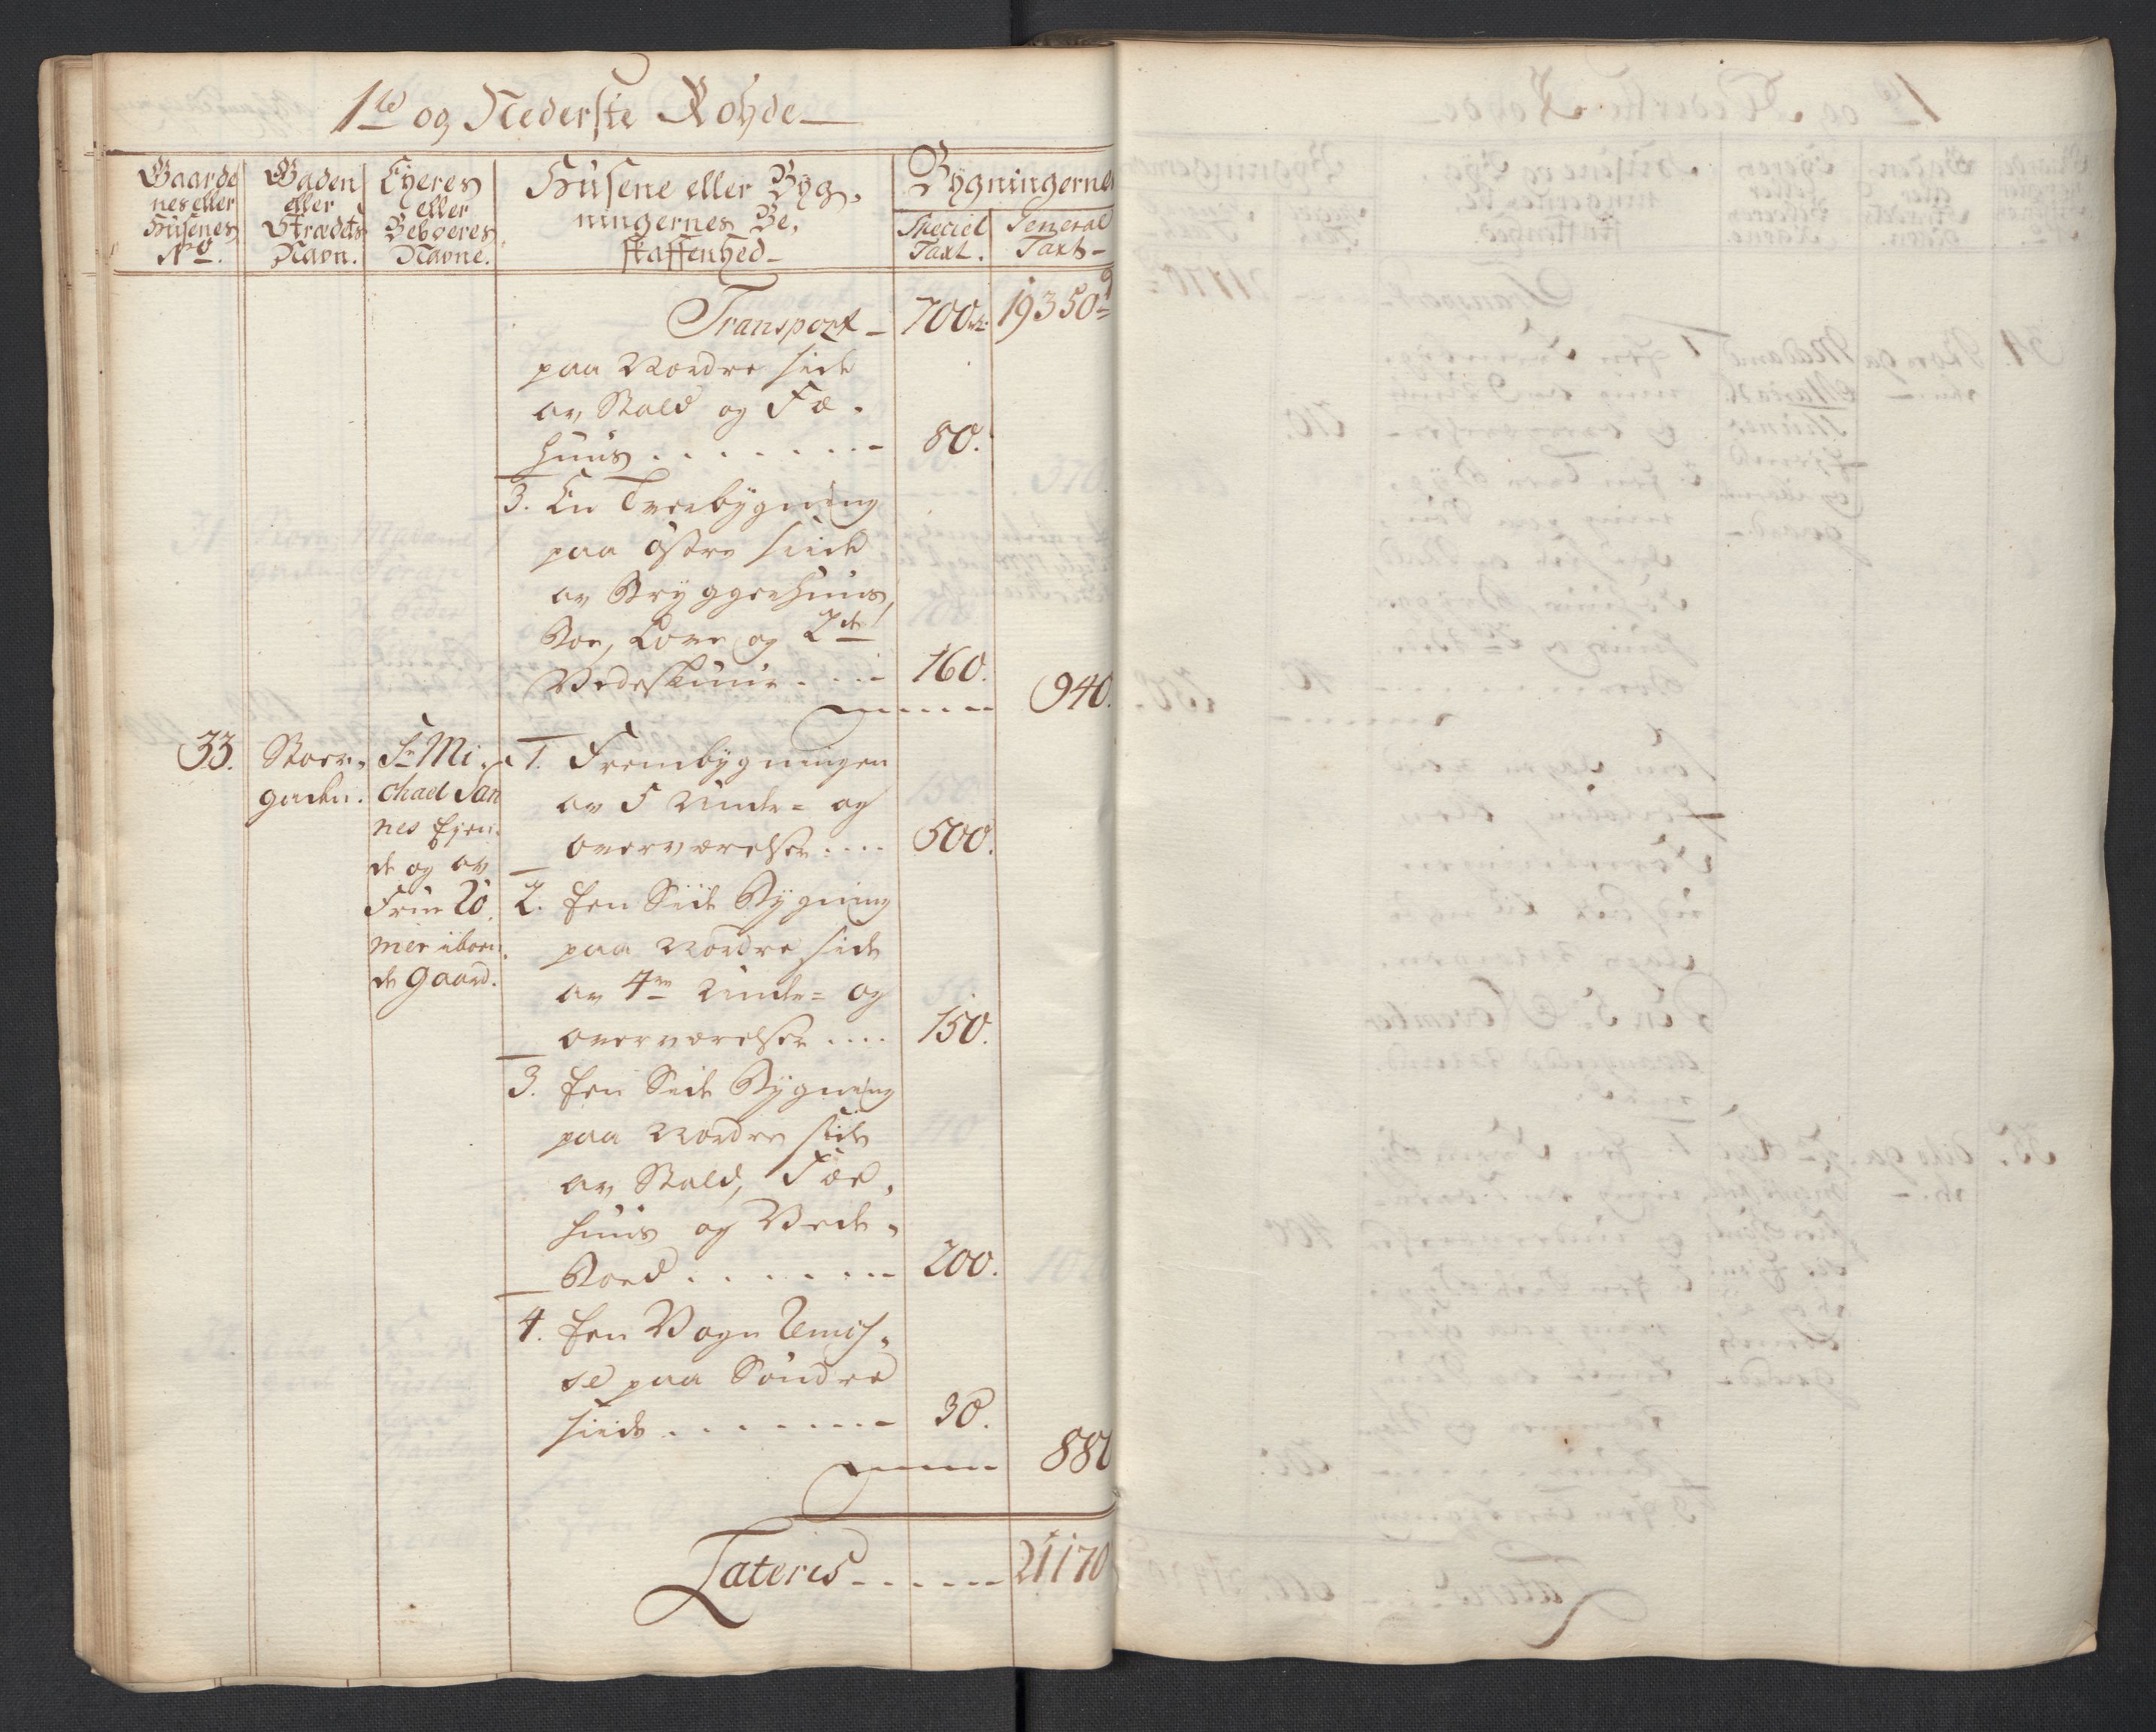 1te og Nederste Royde
Gaarde
nes eller
Husenes
No.
Gaden
eller
Strædets
Navn.
Eyeres
eller
Beboeres
Navne.
Husene eller Byg,
ningernes Be,
skaffenhed
Bygningernes
Speciel
Taxt.
General
Taxt
Transport 700 19350
paa Nordre side
av Stald og Fæ,
huus . . . . . . . 80.
3. En Tverbygning
paa østre siide
av Bryggerhuus,
Boe, Love og 2de
Vedeskuur . . . 160.
940.
33. Stoer,
gaden.
Sr Mi,
chael San
nes Ejen,
de og av
Frue Lö,
mer iboen,
de gaard.
1. Frembygningen
av 5 Under= og
overværelser .... 500.
2. Een Siide Bygning
paa Nordre side
av 4re Under= og
overværelser .... 150.
3. Een Siide Bygning
paa Nordre side
av Stald, Fæe,
huus og Vede,
Boed . . . . . . . 200.
4. Een Vogn Remis,
se paa Søndre
siide . . . . . . . 30.
880
Lateris . . . . . 21170